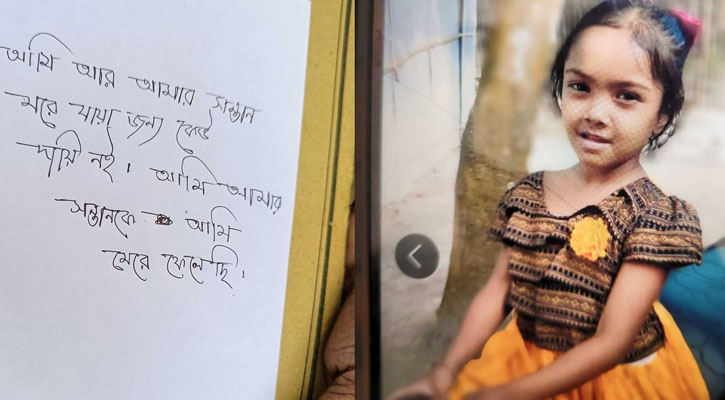 আমি আর আমার সন্তান
মরে যাযা জন্য কেউ
দায়ি নই। আমি আমার
সন্তানকে আমি
মেরে ফেলেছি।